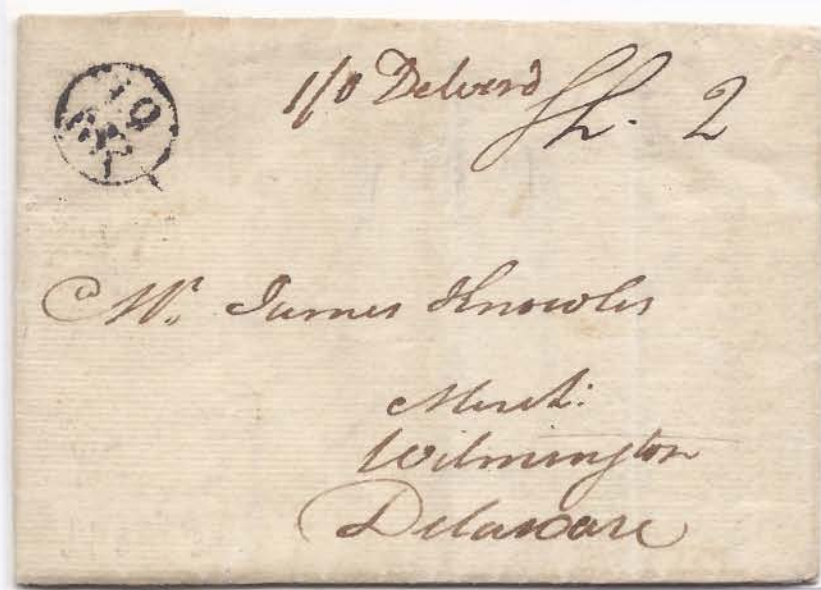 1/0 Deleverd
Sh. 2
10
Mr. James Knowles
Mercht:
Wilmington
Delaware